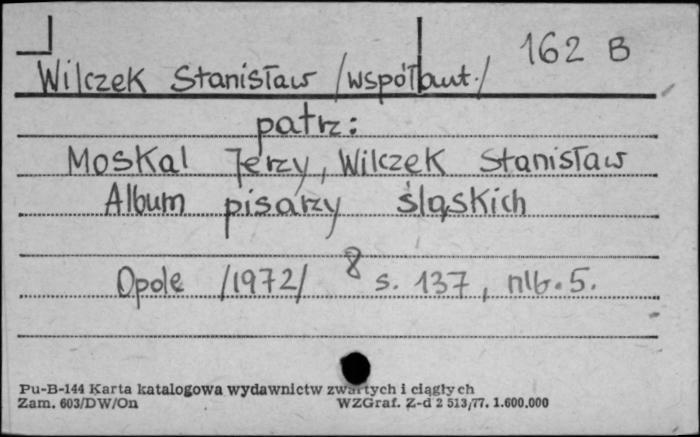 162 B
Wilczek Stanisław /współaut./
patrz:
Moskal Jerzy, Wilczek Stanisław
Album pisarzy śląskich
Opole /1972/ 8 s. 137, nlb. 5.
Pu-B-144 Karta katalogowa wydawnictw zwartych i ciągłych
Zam. 603/DW/On WZGraf. Z-d 2 513/77. 1.600.000